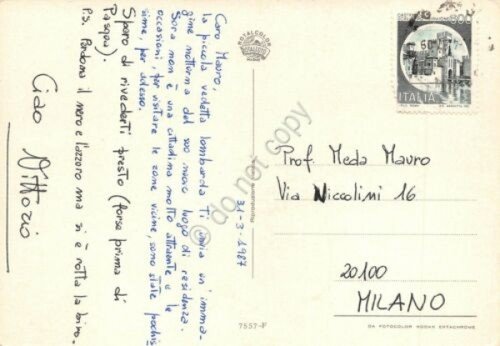 Caro Mauro,
la piccola vedetta lombarda Ti invia un'imma-
gine notturna del suo nuovo luogo di residenza.
Sora non è una cittadina molto attraente e le
occasioni, per visitare le zone vicine, sono state pochis-
sime, per adesso.
Spero di rivederti presto (forse prima di
Pasqua).
P.S. Perdona il nero e l'azzurro ma si è rotta la biro.
Ciao Vittorio
31-3-1987
ITALCOLOR
7557-F
ITALIA
Prof. Meda Mauro
Via Niccolini 16
20100
MILANO
DA FOTOCOLOR KODAK EKTACHROME
do not copy